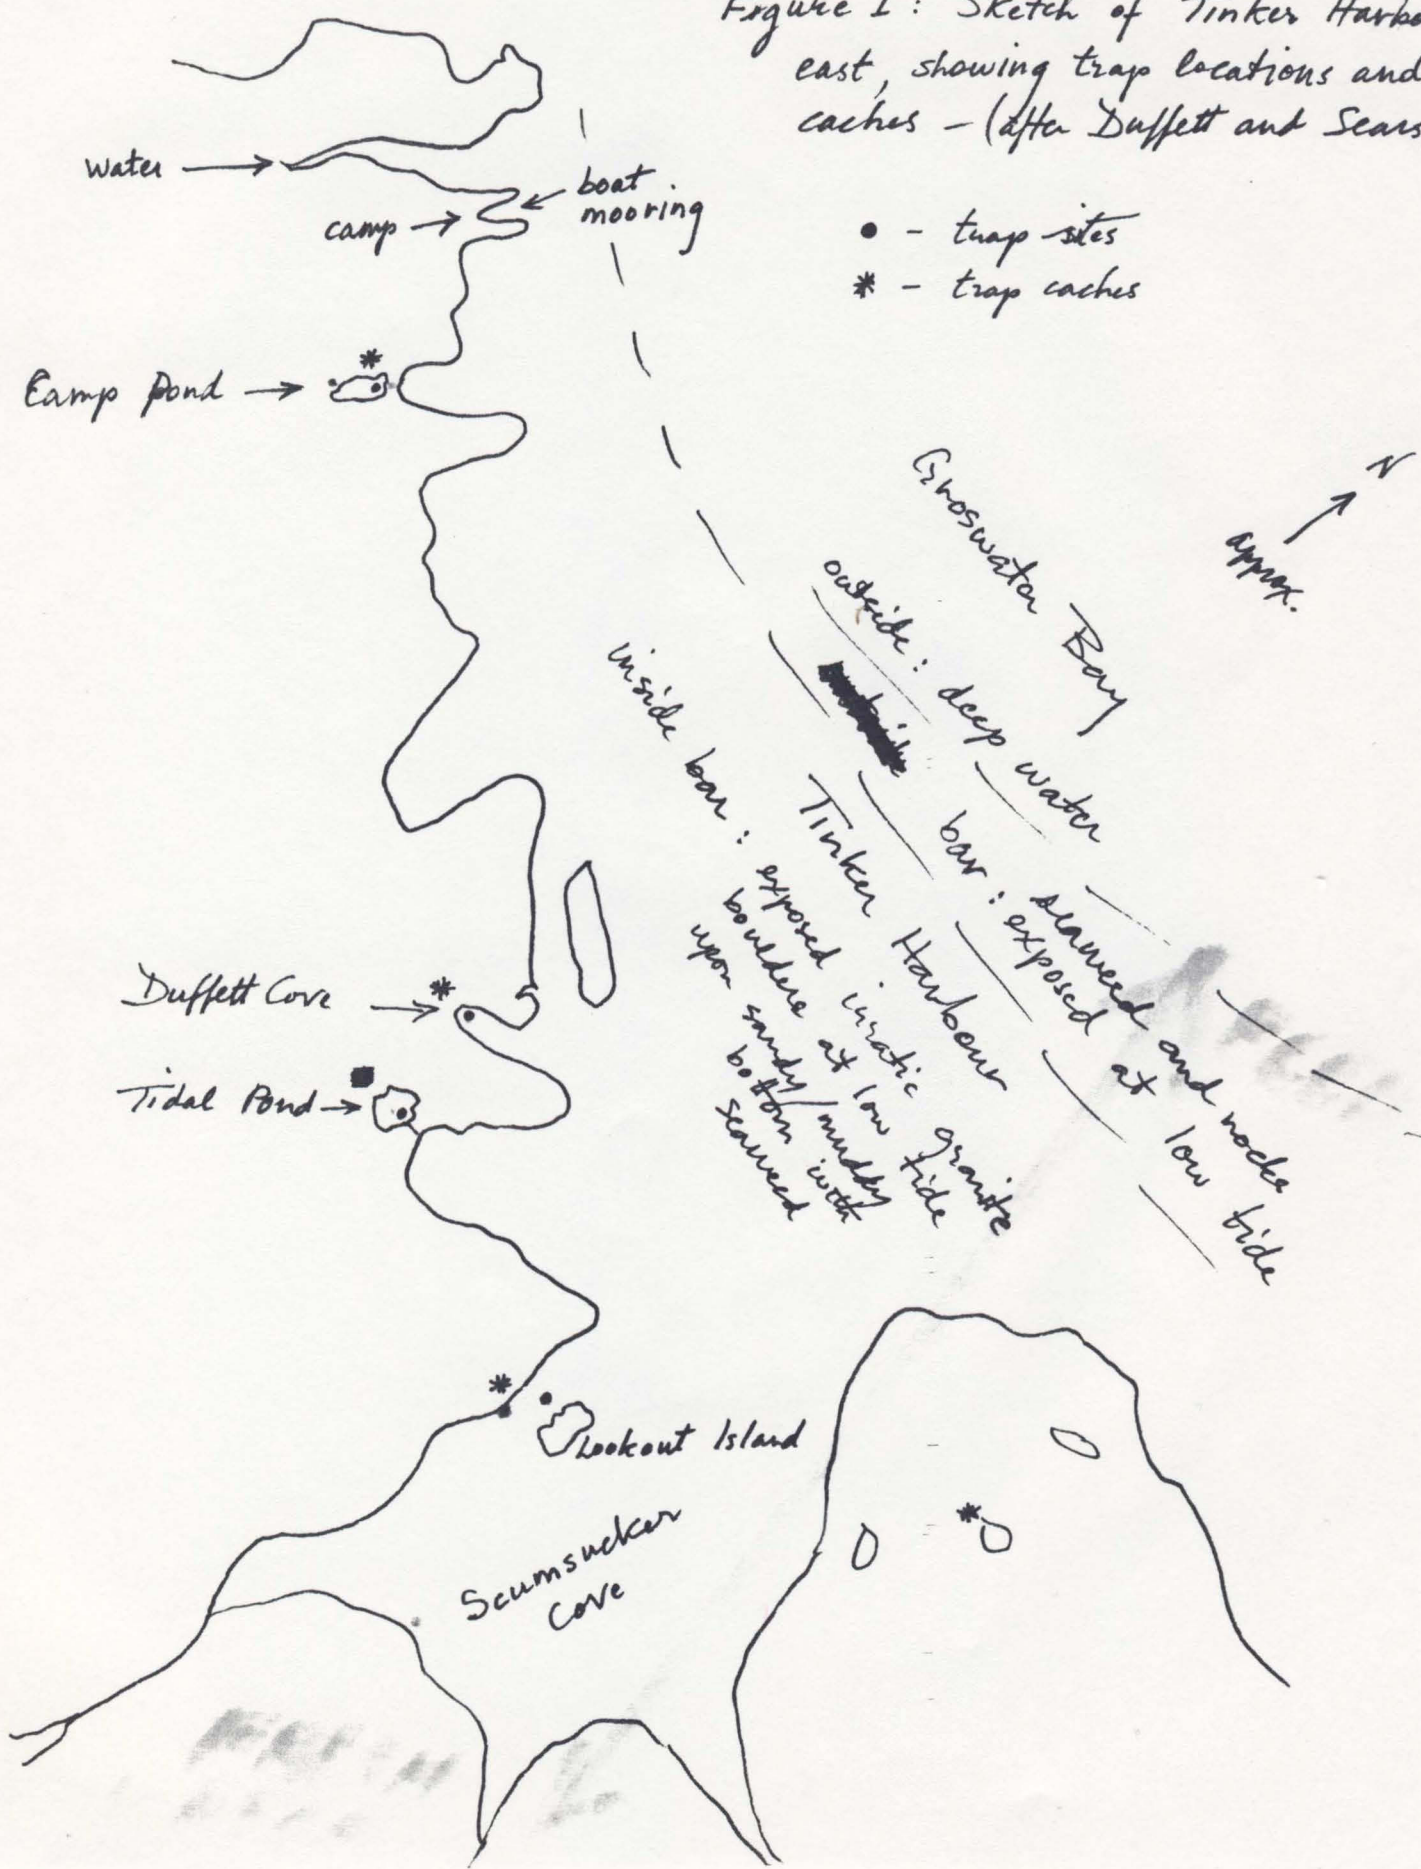 Figure 1: Sketch of Tinker Harbo
east, showing trap locations and
caches - (after Duffett and Sears
water
boat
mooring
camp
• - trap sites
* - trap caches
Camp Pond
N
approx.
Groswater Bay
outside: deep water
bar: seaweed and rocks
exposed at low tide
Tinker Harbour
inside bar: exposed irratic granite
boulders at low tide
upon sandy/muddy
bottom with
seaweed
Duffett Cove
Tidal Pond
Lookout Island
Scumsucker
Cove